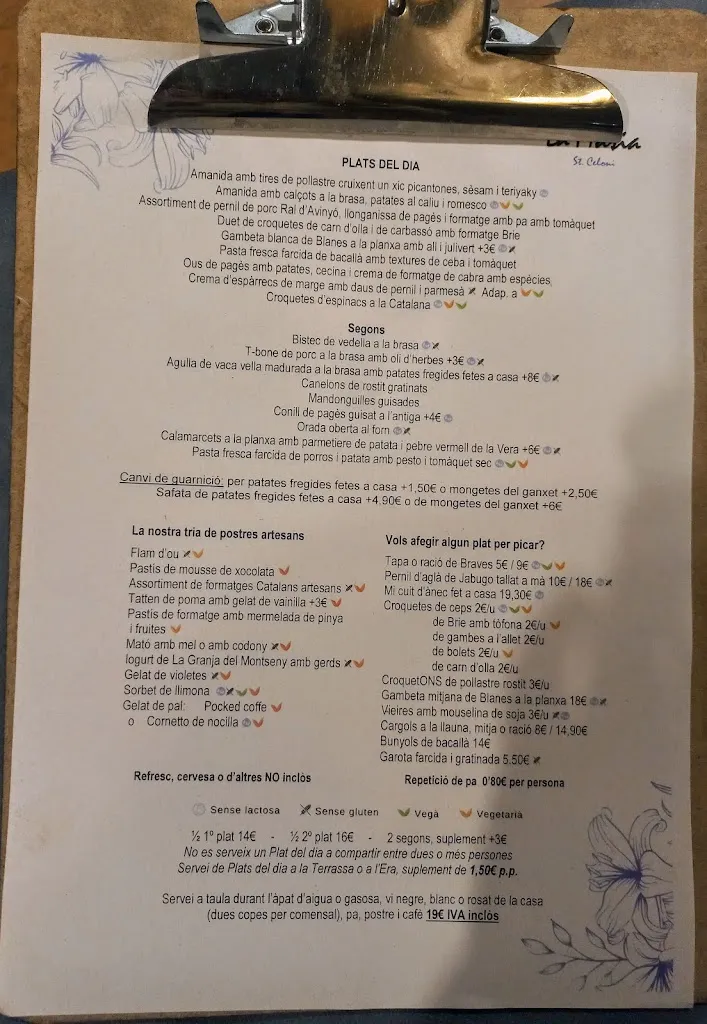 La Masia
St. Celoni
PLATS DEL DIA
Amanida amb tires de pollastre cruixent un xic picantones, sèsam i teriyaky
Amanida amb calçots a la brasa, patates al caliu i romesco
Assortiment de pernil de porc Ral d'Avinyó, llonganissa de pagès i formatge amb pa amb tomàquet
Duet de croquetes de carn d'olla i de carbassó amb formatge Brie
Gambeta blanca de Blanes a la planxa amb all i julivert +3€
Pasta fresca farcida de bacallà amb textures de ceba i tomàquet
Ous de pagès amb patates, cecina i crema de formatge de cabra amb espècies,
Crema d'espàrrecs de marge amb daus de pernil i parmesà Adap. a
Croquetes d'espinacs a la Catalana
Segons
Bistec de vedella a la brasa
T-bone de porc a la brasa amb oli d'herbes +3€
Agulla de vaca vella madurada a la brasa amb patates fregides fetes a casa +8€
Canelons de rostit gratinats
Mandonguilles guisades
Conill de pagès guisat a l'antiga +4€
Orada oberta al forn
Calamarcets a la planxa amb parmetiere de patata i pebre vermell de la Vera +6€
Pasta fresca farcida de porros i patata amb pesto i tomàquet sec
Canvi de guarnició: per patates fregides fetes a casa +1,50€ o mongetes del ganxet +2,50€
Safata de patates fregides fetes a casa +4,90€ o de mongetes del ganxet +6€
La nostra tria de postres artesans
Flam d'ou
Pastis de mousse de xocolata
Assortiment de formatges Catalans artesans
Tatten de poma amb gelat de vainilla +3€
Pastis de formatge amb mermelada de pinya
i fruites
Mató amb mel o amb codony
Iogurt de La Granja del Montseny amb gerds
Gelat de violetes
Sorbet de llimona
Gelat de pal: Pocked coffe
o Cornetto de nocilla
Vols afegir algun plat per picar?
Tapa o ració de Braves 5€ / 9€
Pernil d'aglà de Jabugo tallat a mà 10€ / 18€
Mi cuit d'ànec fet a casa 19,30€
Croquetes de ceps 2€/u
de Brie amb tòfona 2€/u
de gambes a l'allet 2€/u
de bolets 2€/u
de carn d'olla 2€/u
CroquetONS de pollastre rostit 3€/u
Gambeta mitjana de Blanes a la planxa 18€
Vieires amb mouselina de soja 3€/u
Cargols a la llauna, mitja o ració 8€ / 14,90€
Bunyols de bacallà 14€
Garota farcida i gratinada 5.50€
Refresc, cervesa o d'altres NO inclòs
Repetició de pa 0'80€ per persona
Sense lactosa Sense gluten Vegà Vegetarià
½ 1º plat 14€ - ½ 2º plat 16€ - 2 segons, suplement +3€
No es serveix un Plat del dia a compartir entre dues o més persones
Servei de Plats del dia a la Terrassa o a l'Era, suplement de 1,50€ p.p.
Servei a taula durant l'àpat d'aigua o gasosa, vi negre, blanc o rosat de la casa
(dues copes per comensal), pa, postre i cafè 19€ IVA inclòs